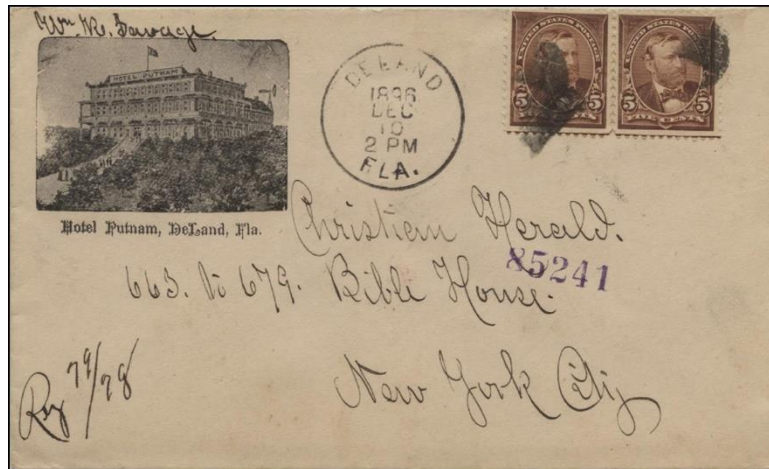 Wm M. Savage.
HOTEL PUTNAM
Hotel Putnam, DeLand, Fla.
DELAND
1896
DEC
10
2 PM
FLA.
UNITED STATES POSTAGE
5 5
FIVE CENTS
UNITED STATES POSTAGE
5 5
FIVE CENTS
Christian Herald.
85241
663. to 679. Bible House.
New York City
Reg 79/78